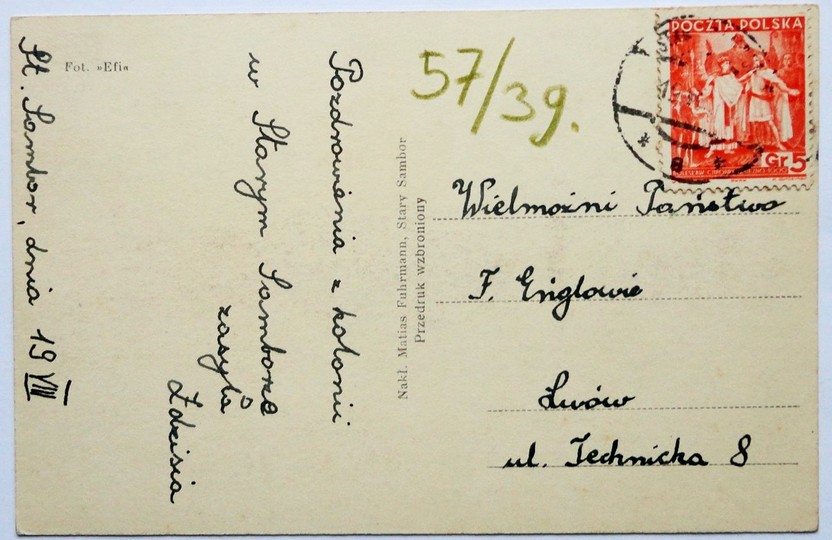 St. Sambor, dnia 19 VIII
Fot. »Efi«
Pozdrowienia z kolonii
w Starym Samborze
zasyła
Zdzisia
57/39.
Nakł. Matias Fuhrmann, Stary Sambor
Przedruk wzbroniony
POCZTA POLSKA
Gr. 5
Wielmożni Państwo
F. Englowie
Lwów
ul. Technicka 8